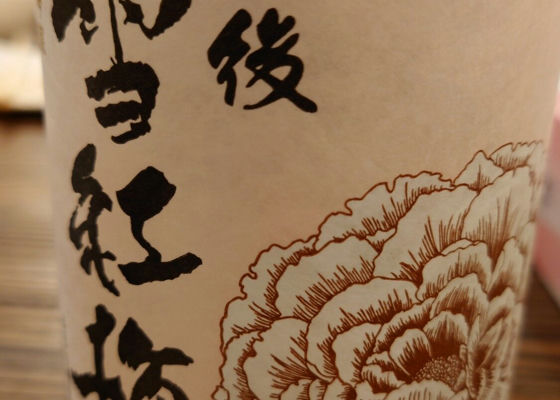 後
雪紅梅